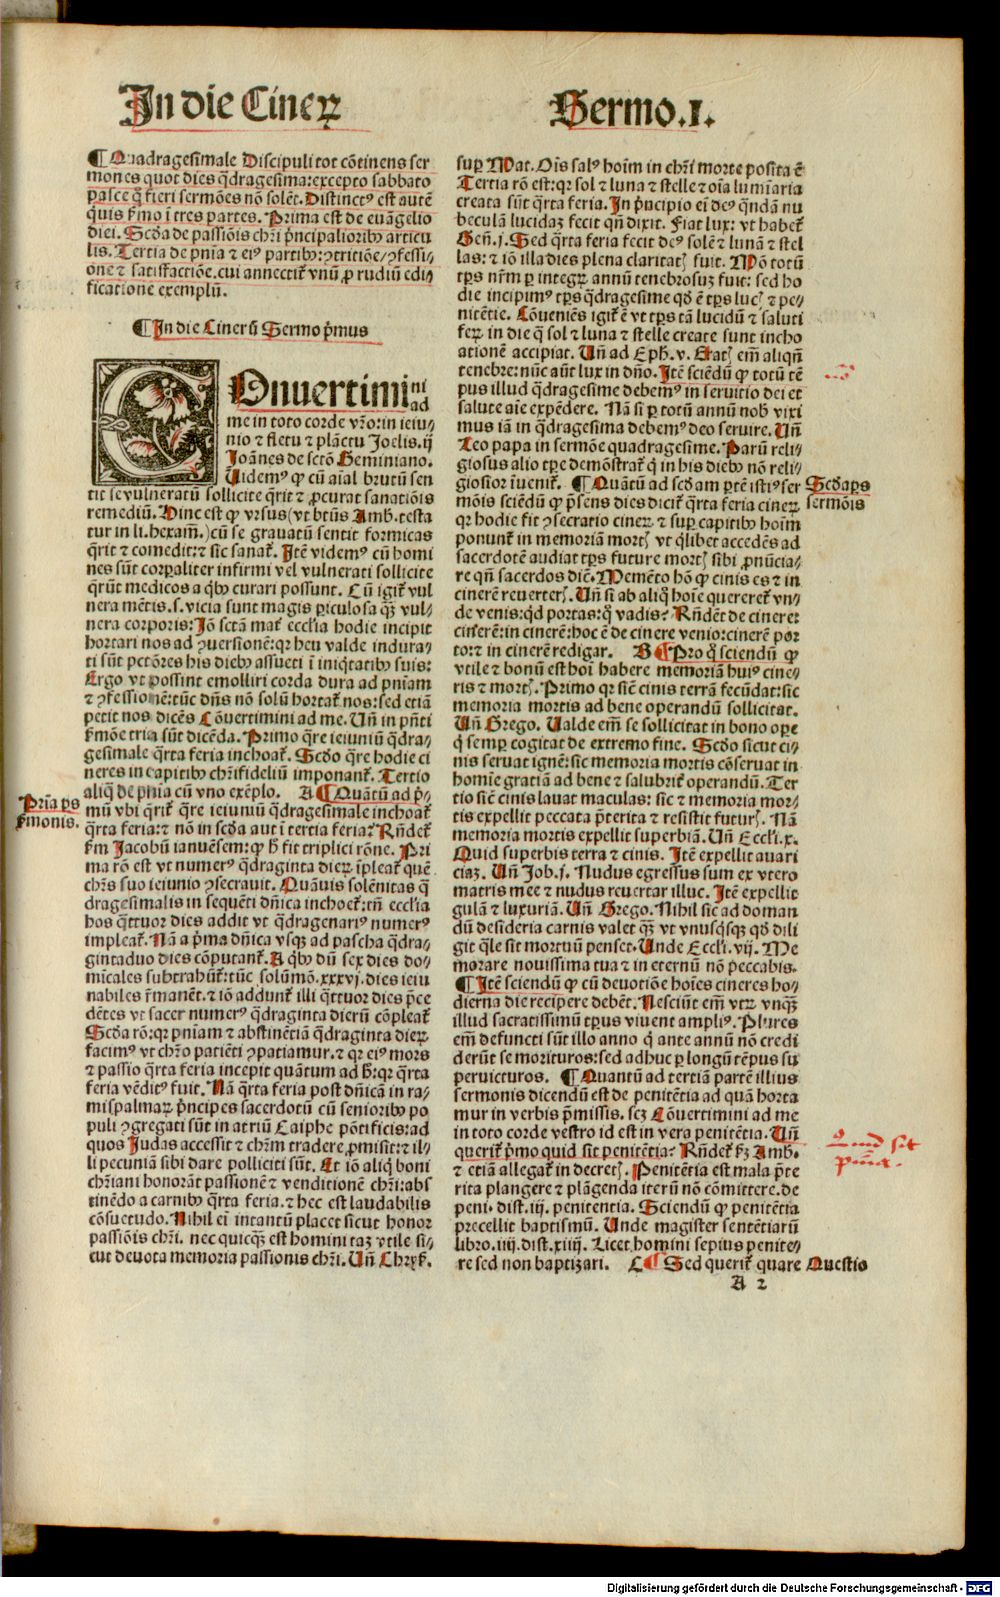 In die Cineꝝ
Sermo.I.
¶ Quadragesimale Discipuli tot cōtinens ser
mones quot dies q̄dragesima: excepto sabbato
pasce q̄ fieri sermōes nō solēt. Distinctꝰ est autē
q̄uis p̄mo ī tres partes. Prima est de euāgelio
diei. Scd̄a de passiōis chr̄i p̄ncipalioribꝰ articu
lis. Tertia de pnīa ⁊ eiꝰ partibꝰ: ꝯtritiōe/ꝯfessi⸗
one ⁊ satisfactiōe. cui annectit̄ vnū ꝓ rudiū edi⸗
ficatione exemplū.
¶ In die Cinerū Sermo p̄mus
COnuertimini
ad
me in toto corde vr̄o: in ieiu⸗
nio ⁊ fletu ⁊ plāctu Joelis. ij
Joānes de sctō Geminiano.
Uidemꝰ ꝙ cū aīal brutū sen
tit se vulneratū sollicite q̄rit ⁊ ꝓcurat sanatiōis
remediū. Hinc est ꝙ vrsus (vt btūs Amb. testa
tur in li. hexam̄.) cū se grauatū sentit formicas
q̄rit ⁊ comedit: ⁊ sic sanat̄. Itē videmꝰ cū homi
nes sūt corꝑaliter infirmi vel vulnerati sollicite
q̄rūt medicos a qbꝰ curari possunt. Cū igit̄ vul
nera mētis. s. vicia sunt magis ꝑiculosa qꝫ vul⸗
nera corporis: Jō sctā mat̄ eccl'ia hodie incipit
hortari nos ad ꝯuersionē: qr heu valde indura⸗
ti sūt pctōres his diebꝰ assueti ī iniqtatibꝰ suis:
Ergo vt possint emolliri corda dura ad pnīam
⁊ ꝯfessionē: tūc dn̄s nō solū hortat̄ nos: sed etiā
petit nos dicēs Cōuertimini ad me. Un̄ in pn̄ti
f̄mōe tria sūt dicēda. Primo q̄re ieiuniū q̄dra⸗
gesimale q̄rta feria inchoat̄. Scd̄o q̄re hodie ci
neres in capitibꝰ chr̄ifideliū imponant̄. Tertio
aliq̄ de pnīa cū vno exēplo. A ¶ Quātū ad p̄⸗
mū vbi q̄rit̄ q̄re ieiuniū q̄dragesimale inchoat̄
q̄rta feria: ⁊ nō in scd̄a aut ī tertia feria? Rn̄det̄
f̄m Jacobū ianuēsem: ꝙ h̄ fit triplici rōne. Pri
ma rō est vt numerꝰ q̄draginta dieꝝ īpleat̄ quē
chr̄s suo ieiunio ꝯsecrauit. Quāuis solēnitas q̄
dragesimalis in sequēti dn̄ica inchoet̄: tn̄ eccl'ia
hos q̄ttuor dies addit vt q̄dragenariꝰ numerꝰ
impleat̄. Nā a p̄ma dn̄ica vsqꝫ ad pascha q̄dra⸗
gintaduo dies cōputant̄. A qbꝰ dū sex dies do⸗
mīcales subtrahūt̄: tūc solūmō. xxxvj. dies ieiu
nabiles r̄manēt. ⁊ iō addunt̄ illi q̄ttuor dies p̄ce
dētes vt sacer numerꝰ q̄draginta dierū cōpleat̄
Scd̄a rō: qr pnīam ⁊ abstinētiā q̄draginta dieꝝ
facimꝰ vt chr̄o patiēti ꝯpatiamur. ⁊ qr eiꝰ mors
⁊ passio q̄rta feria incepit quātum ad h̄: qr q̄rta
feria vēditꝰ fuit. Nā q̄rta feria post dn̄icā in ra⸗
mispalmaꝝ p̄ncipes sacerdotū cū senioribꝰ po
puli ꝯgregati sūt in atriū Caiphe pōtificis: ad
quos Judas accessit ⁊ chr̄m tradere ꝓmisit: ⁊ il⸗
li pecuniā sibi dare polliciti sūt. Et iō aliq̄ boni
chr̄iani honorāt passionē ⁊ venditionē chr̄i: abs
tinēdo a carnibꝰ q̄rta feria. ⁊ hec est laudabilis
cōsuetudo. Nihil ei̅ intantū placet sicut honor
passiōis chr̄i. nec quicqꝫ est homini taꝫ vtile si⸗
cut deuota memoria passionis chr̄i. Un̄ Chrys̄.
Prīa ps
f̄monis.
suꝑ Mat. Oīs salꝰ hoīm in chr̄i morte posita ē
Tertia rō est: qr sol ⁊ luna ⁊ stelle ⁊ oīa lumīaria
creata sūt q̄rta feria. In p̄ncipio ei̅ deꝰ q̄ndā nu
beculā lucidaꝫ fecit qn̄ dixit. Fiat lux: vt habet̄
Gen̄. j. Sed q̄rta feria fecit deꝰ solē ⁊ lunā ⁊ stel
las: ⁊ iō illa dies plena claritatꝭ fuit. Mō totū
tp̄s nr̄m ꝑ integꝝ annū tenebrosuꝫ fuit: sed ho
die incipimꝰ tp̄s q̄dragesime qd̄ ē tp̄s lucꝭ ⁊ pe⸗
nitētie. Cōueniēs igit̄ ē vt tp̄s tā lucidū ⁊ saluti
feꝝ in die q̄ sol ⁊ luna ⁊ stelle create sunt incho
ationē accipiat. Un̄ ad Eph̄. v. Eratꝭ em̄ aliqn̄
tenebre: nūc aūt lux in dn̄o. Itē sciēdū ꝙ totū tē
pus illud q̄dragesime debemꝰ in seruitio dei et
salute aīe expēdere. Nā si ꝑ totū annū nob̄ vixi
mus iā in q̄dragesima debemꝰ deo seruire. Un̄
Leo papa in sermōe quadragesime. Parū reli⸗
giosus alio tꝑe demōstrat̄ q̄ in his diebꝰ nō reli⸗
giosior īuenit̄. ¶ Quātū ad scd̄am ꝑtē istiꝰ ser
mōis sciēdū ꝙ p̄sens dies dicit̄ q̄rta feria cineꝝ
qr hodie fit ꝯsecratio cineꝝ ⁊ suꝑ capitibꝰ hoīm
ponunt̄ in memoriā mortꝭ vt qlibet accedēs ad
sacerdotē audiat tp̄s future mortꝭ sibi ꝓnūcia⸗
re qn̄ sacerdos diē. Memēto hō ꝙ cinis es ⁊ in
cinerē reuerterꝭ. Un̄ si ab aliq̄ hoīe quereret̄ vn⸗
de venis: qd portas: q̄ vadis? Rn̄dēt de cinere:
cinerē: in cinerē: hoc ē de cinere venio: cinerē por
to: ⁊ in cinerē redigar. B ¶ Pro q̄ sciendū ꝙ
vtile ⁊ bonū est hoī habere memoriā huiꝰ cine⸗
ris ⁊ mortꝭ. Primo qr sicut̄ cinis terrā fecūdat: sic
memoria mortis ad bene operandū sollicitat.
Un̄ Grego. Ualde em̄ se sollicitat in bono ope
q̄ semꝑ cogitat de extremo fine. Scd̄o sicut ci⸗
nis seruat ignē: sic memoria mortis cōseruat in
homīe gratiā ad bene ⁊ salubrit̄ operandū. Ter
tio sicut̄ cinis lauat maculas: sic ⁊ memoria mor⸗
tis expellit peccata p̄terita ⁊ resistit futurꝭ. Nā
memoria mortis expellit superbiā. Un̄ Eccl'i. x.
Quid superbis terra ⁊ cinis. Itē expellit auari
ciaꝫ. Un̄ Job. j. Nudus egressus sum ex vtero
matris mee ⁊ nudus reuertar illuc. Itē expellit
gulā ⁊ luxuriā. Un̄ Grego. Nihil sic ad doman
dū desideria carnis valet qꝫ vt vnusqsqꝫ qd̄ dili
git q̄le sit mortuū penset. Unde Eccl'i. vij. Me
morare nouissima tua ⁊ in eternū nō peccabis.
¶ Itē sciendū ꝙ cū deuotiōe hoīes cineres ho⸗
dierna die recipere debēt. Nesciūt em̄ vtꝝ vnqꝫ
illud sacratissimū tꝑus viuent ampliꝰ. Plures
em̄ defuncti sūt illo anno q̄ ante annū nō credi
derūt se morituros: sed adhuc ꝑ longū tēpus su
peruicturos. ¶ Quantū ad tertiā partē illius
sermonis dicendū est de penitētia ad quā horta
mur in verbis p̄missis. scꝫ Cōuertimini ad me
in toto corde vestro id est in vera penitētia. Un̄
querit̄ p̄mo quid sit penitētia? Rn̄det̄ f̄ꝫ Amb.
⁊ etiā allegat̄ in decretꝭ. Penitētia est mala p̄te
rita plangere ⁊ plāgenda iterū nō cōmittere. de
peni. dist. iij. penitentia. Sciendū ꝙ penitētia
precellit baptismū. Unde magister sentētiarū
libro. iiij. dist. xiiij. Licet homini sepius penite⸗
re sed non baptizari. C ¶ Sed querit̄ quare
A 2
Scd̄a ps
sermōis
Questio
Digitalisierung gefördert durch die Deutsche Forschungsgemeinschaft - DFG